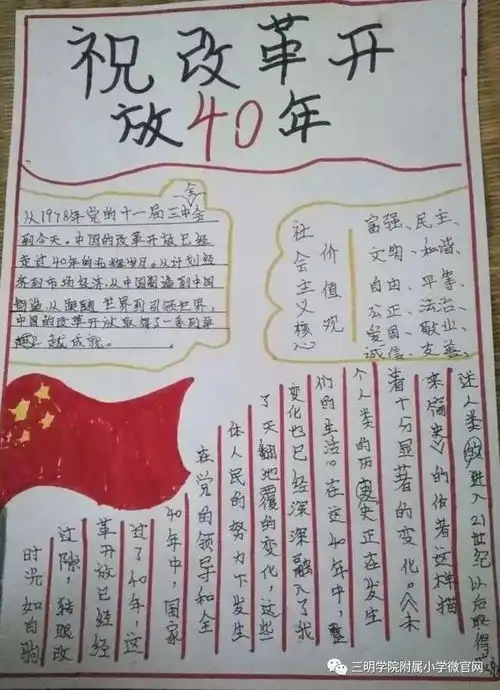 祝改革开
放40年
会
从1978年党的十一届三中全
到今天,中国的改革开放已经
走过40年的光辉岁月。从计划经
济到市场经济,从中国制造到中国
创造,从世界到引领世界,
中国的改革开放取得了一系列卓
越成就。
社会主义核心
价值观
富强、民主、
文明、和谐、
自由、平等、
公正、法治、
爱国、敬业、
诚信、友善、
时光如白驹
过隙,转眼改
革开放已经经
过了40年,这
40年中,国家
在党的领导和全
体人民的努力下发生
了天翻地覆的变化,这些
变化也已经深深融入了我
们的生活。在这40年中,整
个人类的历史正在发生
着十分显著的变化。《未
来简史》的作者这样描
述人类进入21世纪以后取得
三明学院附属小学微官网